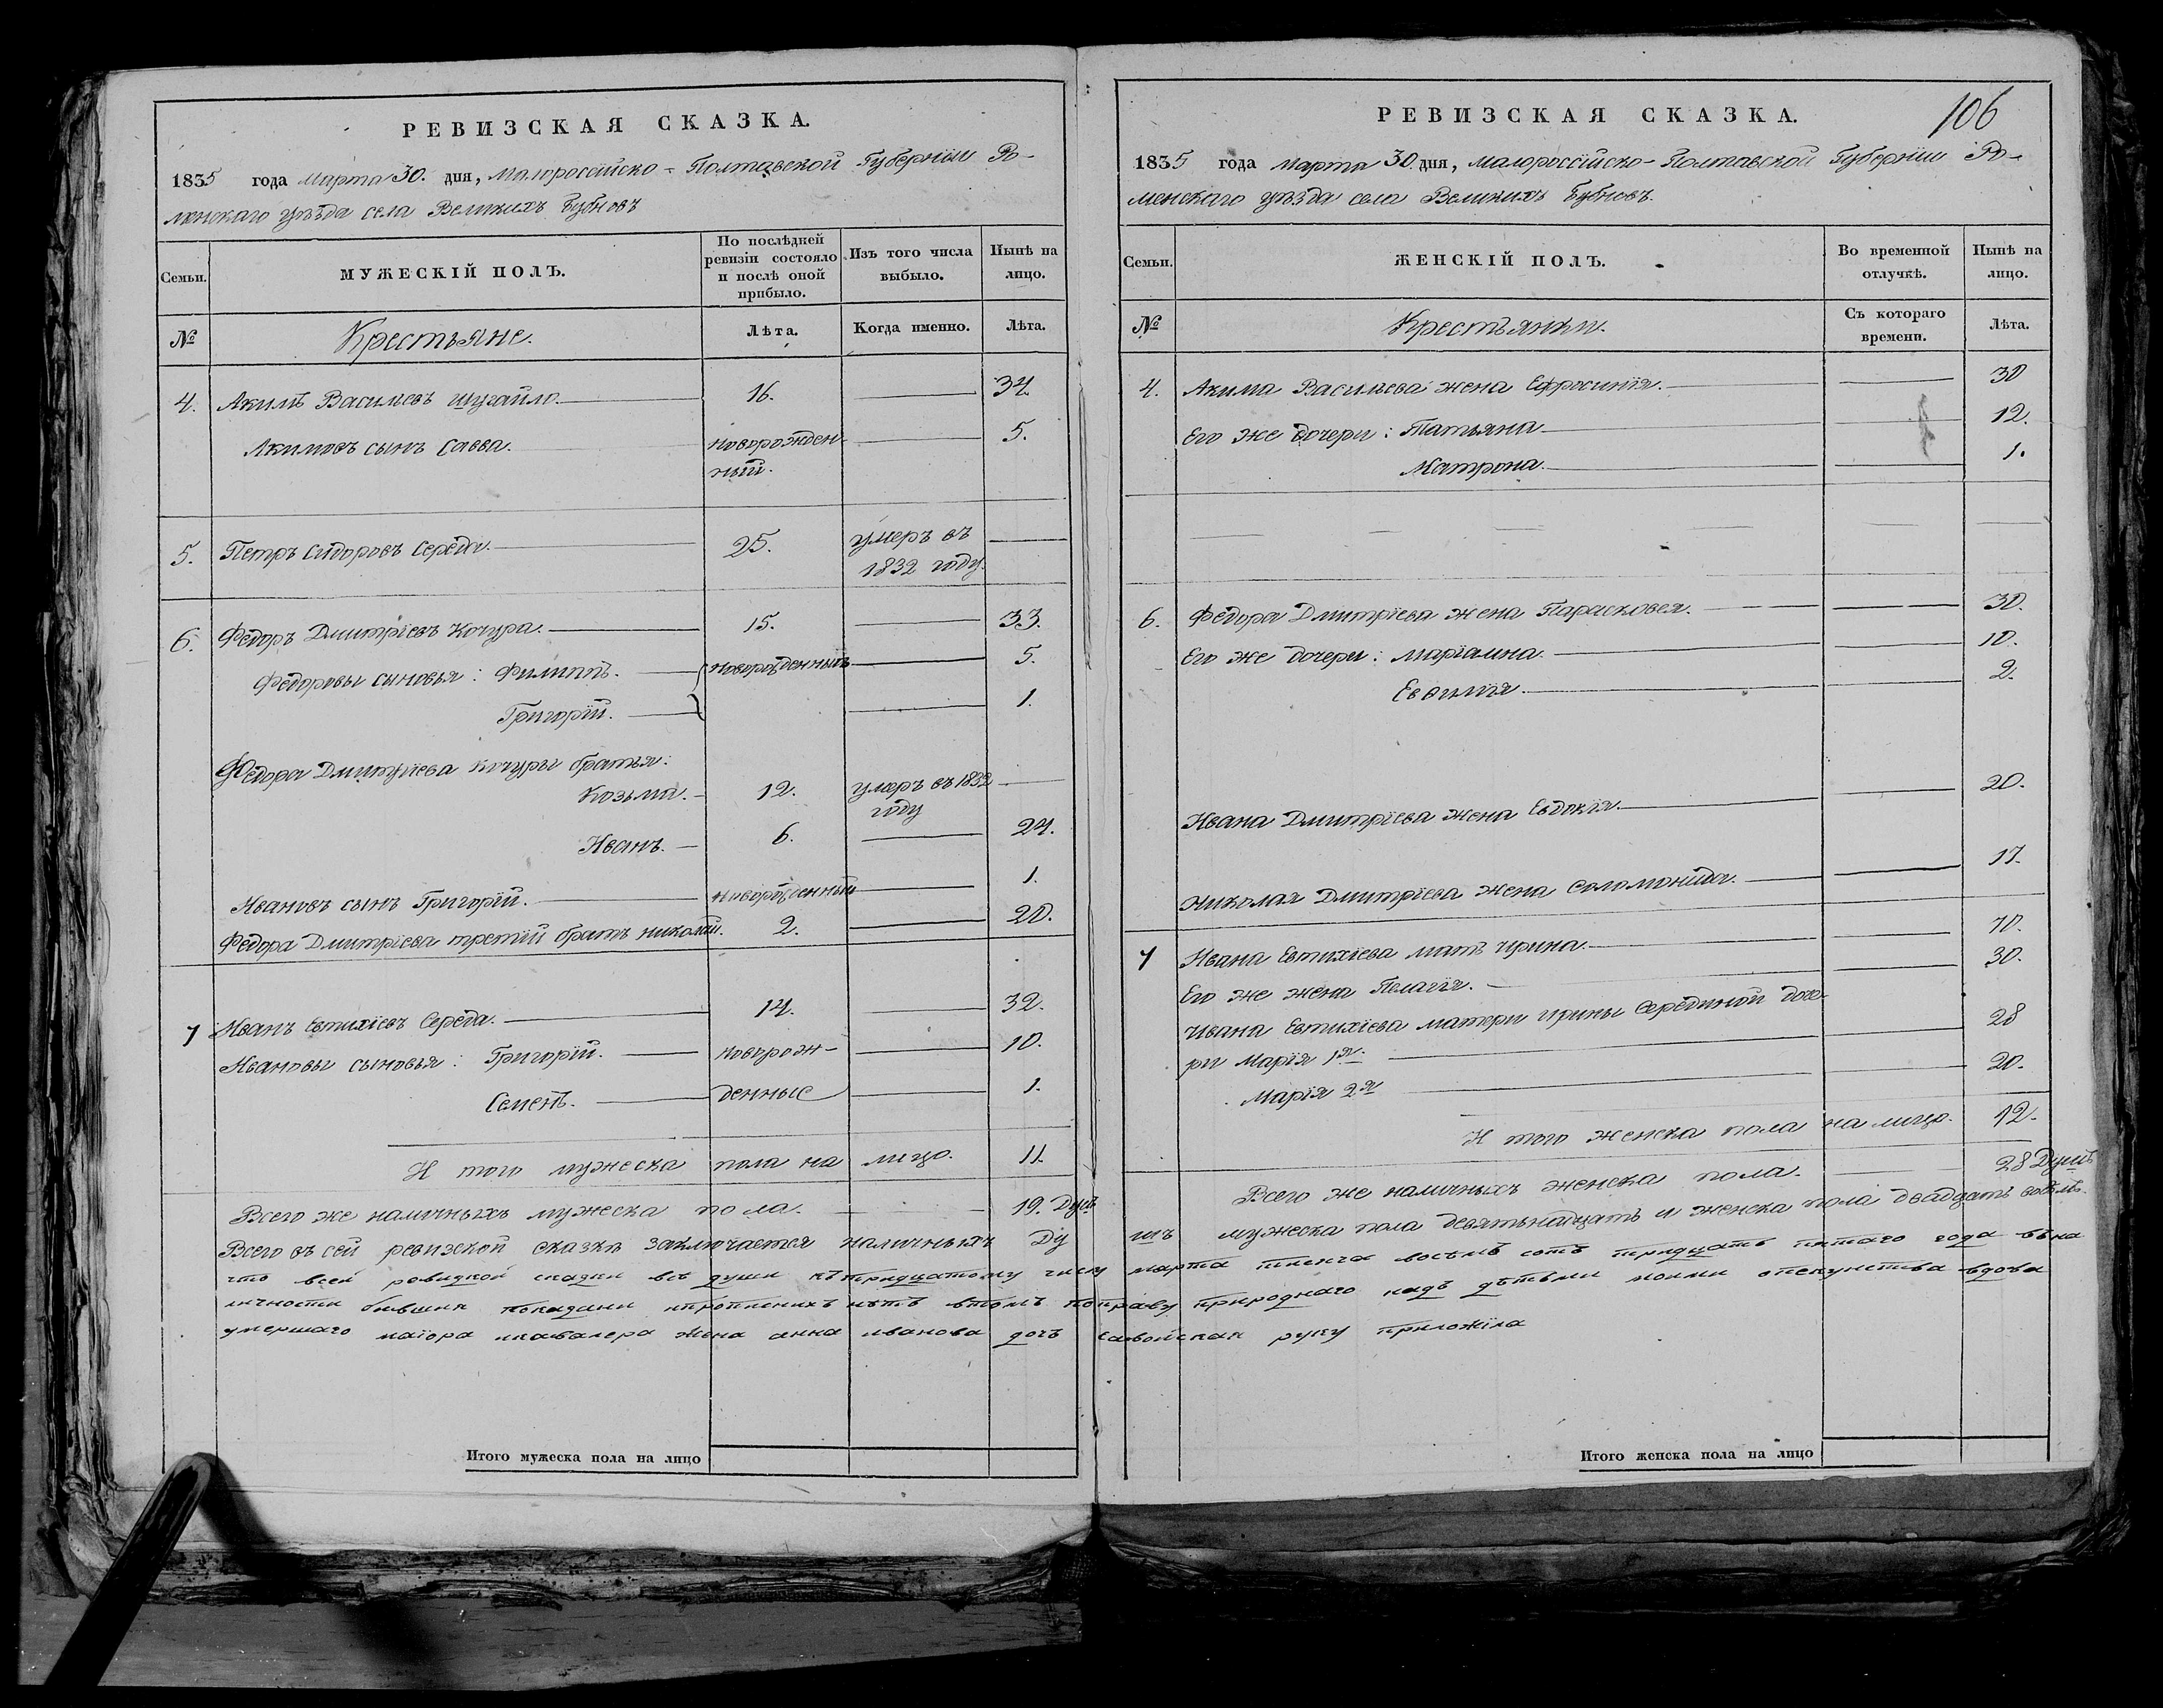 РЕВИЗСКАЯ СКАЗКА.
1835 года марта 30. дня, Малороссійско-Полтавской Губерніи Ро-
менскаго уѣзда села Великихъ Бубновъ
Семьи.
МУЖЕСКІЙ ПОЛЪ.
По послѣдней ревизіи состояло и послѣ оной прибыло.
Изъ того числа выбыло.
Нынѣ на лицо.
№
Крестьяне.
Лѣта.
Когда именно.
Лѣта.
4. Акимъ Васильевъ Шугайло. 16. 34.
Акимовъ сынъ Савва. новорожден- 5.
ный.
5. Петръ Сидоровъ Середа. 25. умеръ въ
1832 году.
6. Федоръ Дмитріевъ Кочура. 15. 33.
Федоровы сыновья: Филиппъ. новорожденный 5.
Григорій. 1.
Федора Дмитріева Кочуры братья:
Козьма. 12. умеръ въ 1832
году
Иванъ. 6. 24.
Ивановъ сынъ Григорій. новорожденный 1.
Федора Дмитріева третій братъ Николай. 2. 20.
7 Иванъ Евтихіевъ Середа. 14. 32.
Ивановы сыновья: Григорій. новорож- 10.
Семенъ. денные 1.
И того мужеска пола на лицо. 11.
Всего же наличныхъ мужеска пола. 19. Душъ
Всего въ сей ревизской сказкѣ заключается наличныхъ Ду
что всей ревизкой сказки всѣ души къ тридцатому числу
личности бывшия показани итропиених нѣтъ втомъ поправу
умершаго маіора икавалера жена анна иванова дочь
Итого мужеска пола на лицо
106
РЕВИЗСКАЯ СКАЗКА.
1835 года марта 30. дня, Малороссійско-Полтавской Губерніи Ро-
менскаго уѣзда села Великихъ Бубновъ.
Семьи.
ЖЕНСКІЙ ПОЛЪ.
Во временной отлучкѣ.
Нынѣ на лицо.
№
Крестьянки.
Съ котораго времени.
Лѣта.
4. Акима Васильева жена Ефросинія. 30
Его же дочери: Татьяна 12.
Матрона. 1.
6. Федора Дмитріева жена Парасковея. 30.
Его же дочери: Маріамна. 10.
Евфимія. 2.
Ивана Дмитріева жена Евдокія. 20.
Николая Дмитріева жена Соломонида. 17.
7 Ивана Евтихіева мать Ирина. 70.
Его же жена Пелагія. 30.
Ивана Евтихіева матери Ирины Серединой доче-
ри Марія 1я. 28
Марія 2я 20.
И того женска пола на лицо. 12.
Всего же наличныхъ женска пола. 28 Душъ
шъ мужеска пола девятьнадцать и женска пола двадцать восѣмь.
марта тисяча восѣмъ сотъ тридцать пятаго года въна
природнаго надъ дѣтьми моими опекунства вдова
руку приложила
Итого женска пола на лицо